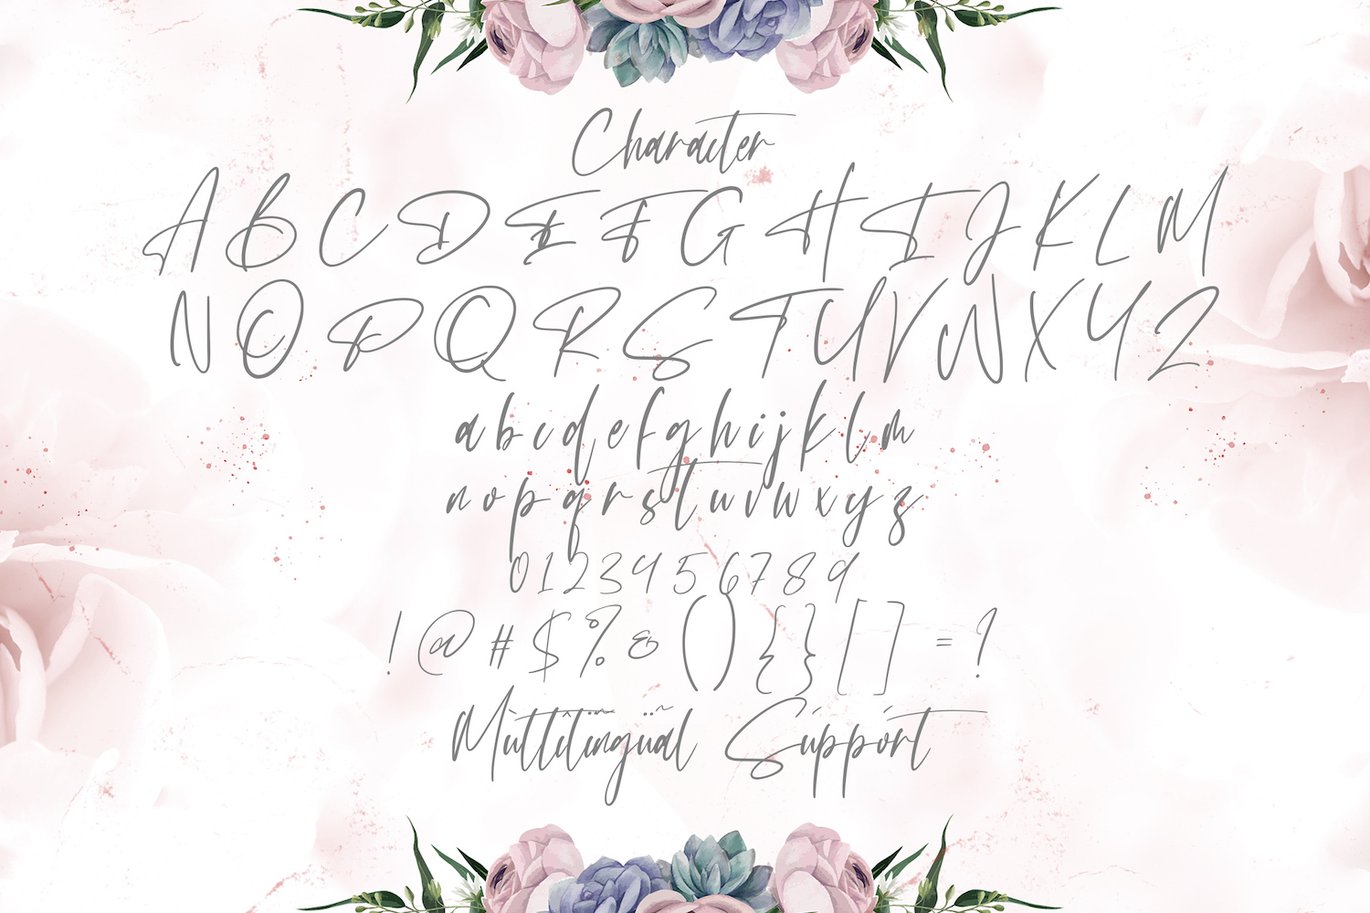 Character
A B C D E F G H I J K L M
N O P Q R S T U V W X Y Z
a b c d e f g h i j k l m
n o p q r s t u v w x y z
0 1 2 3 4 5 6 7 8 9
! @ # $ % & ( ) { } [ ] = ?
Support